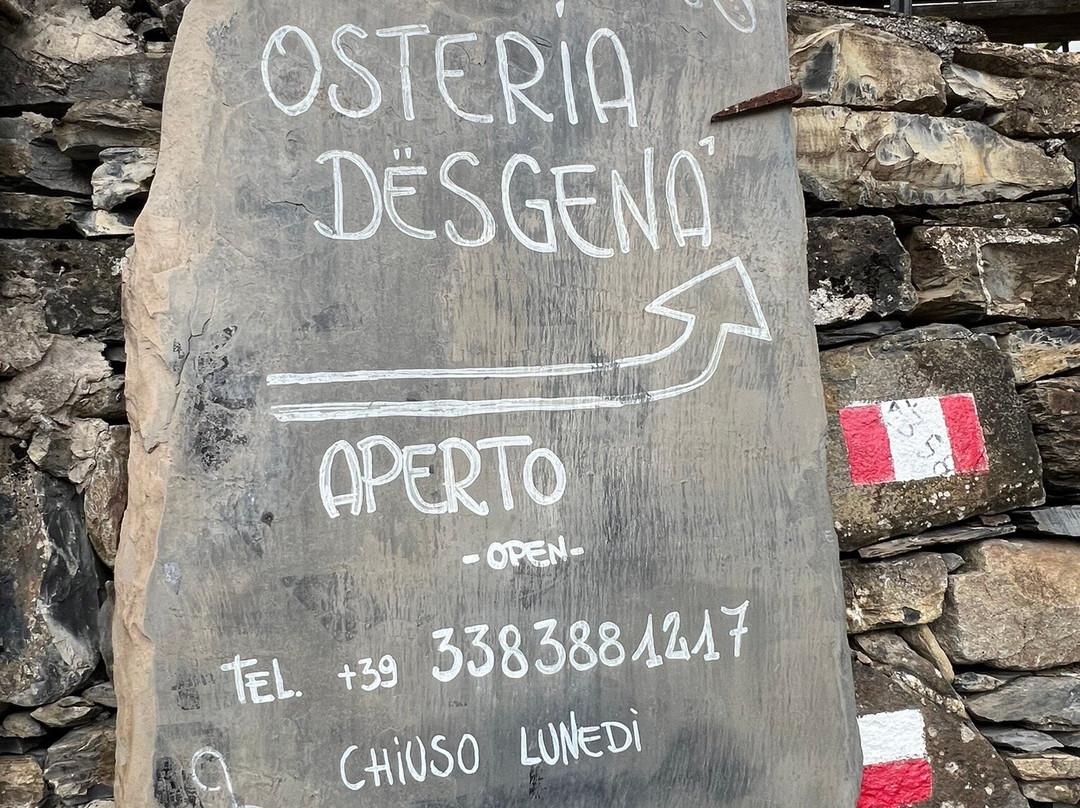 OSTERIA
DËSGENA'
APERTO
-OPEN-
TEL. +39 3383881217
CHIUSO LUNEDÌ